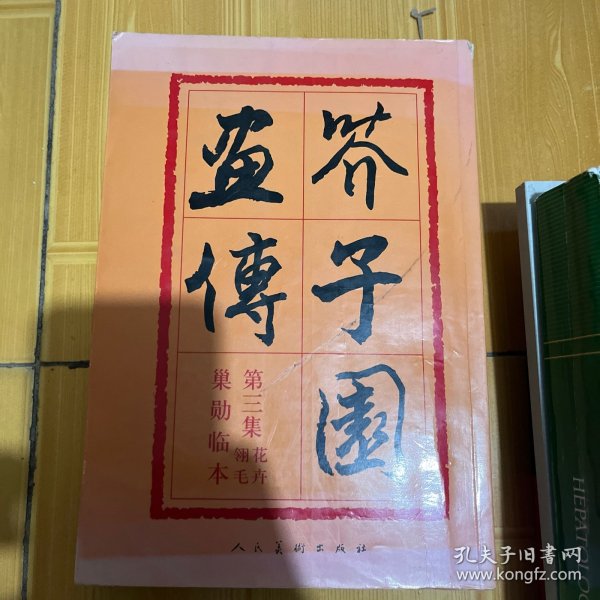 芥子園
畫傳
第三集
花卉
翎毛
巢勋临本
人民美術出版社
HEPATOLOG
孔夫子旧书网
www.kongfz.com